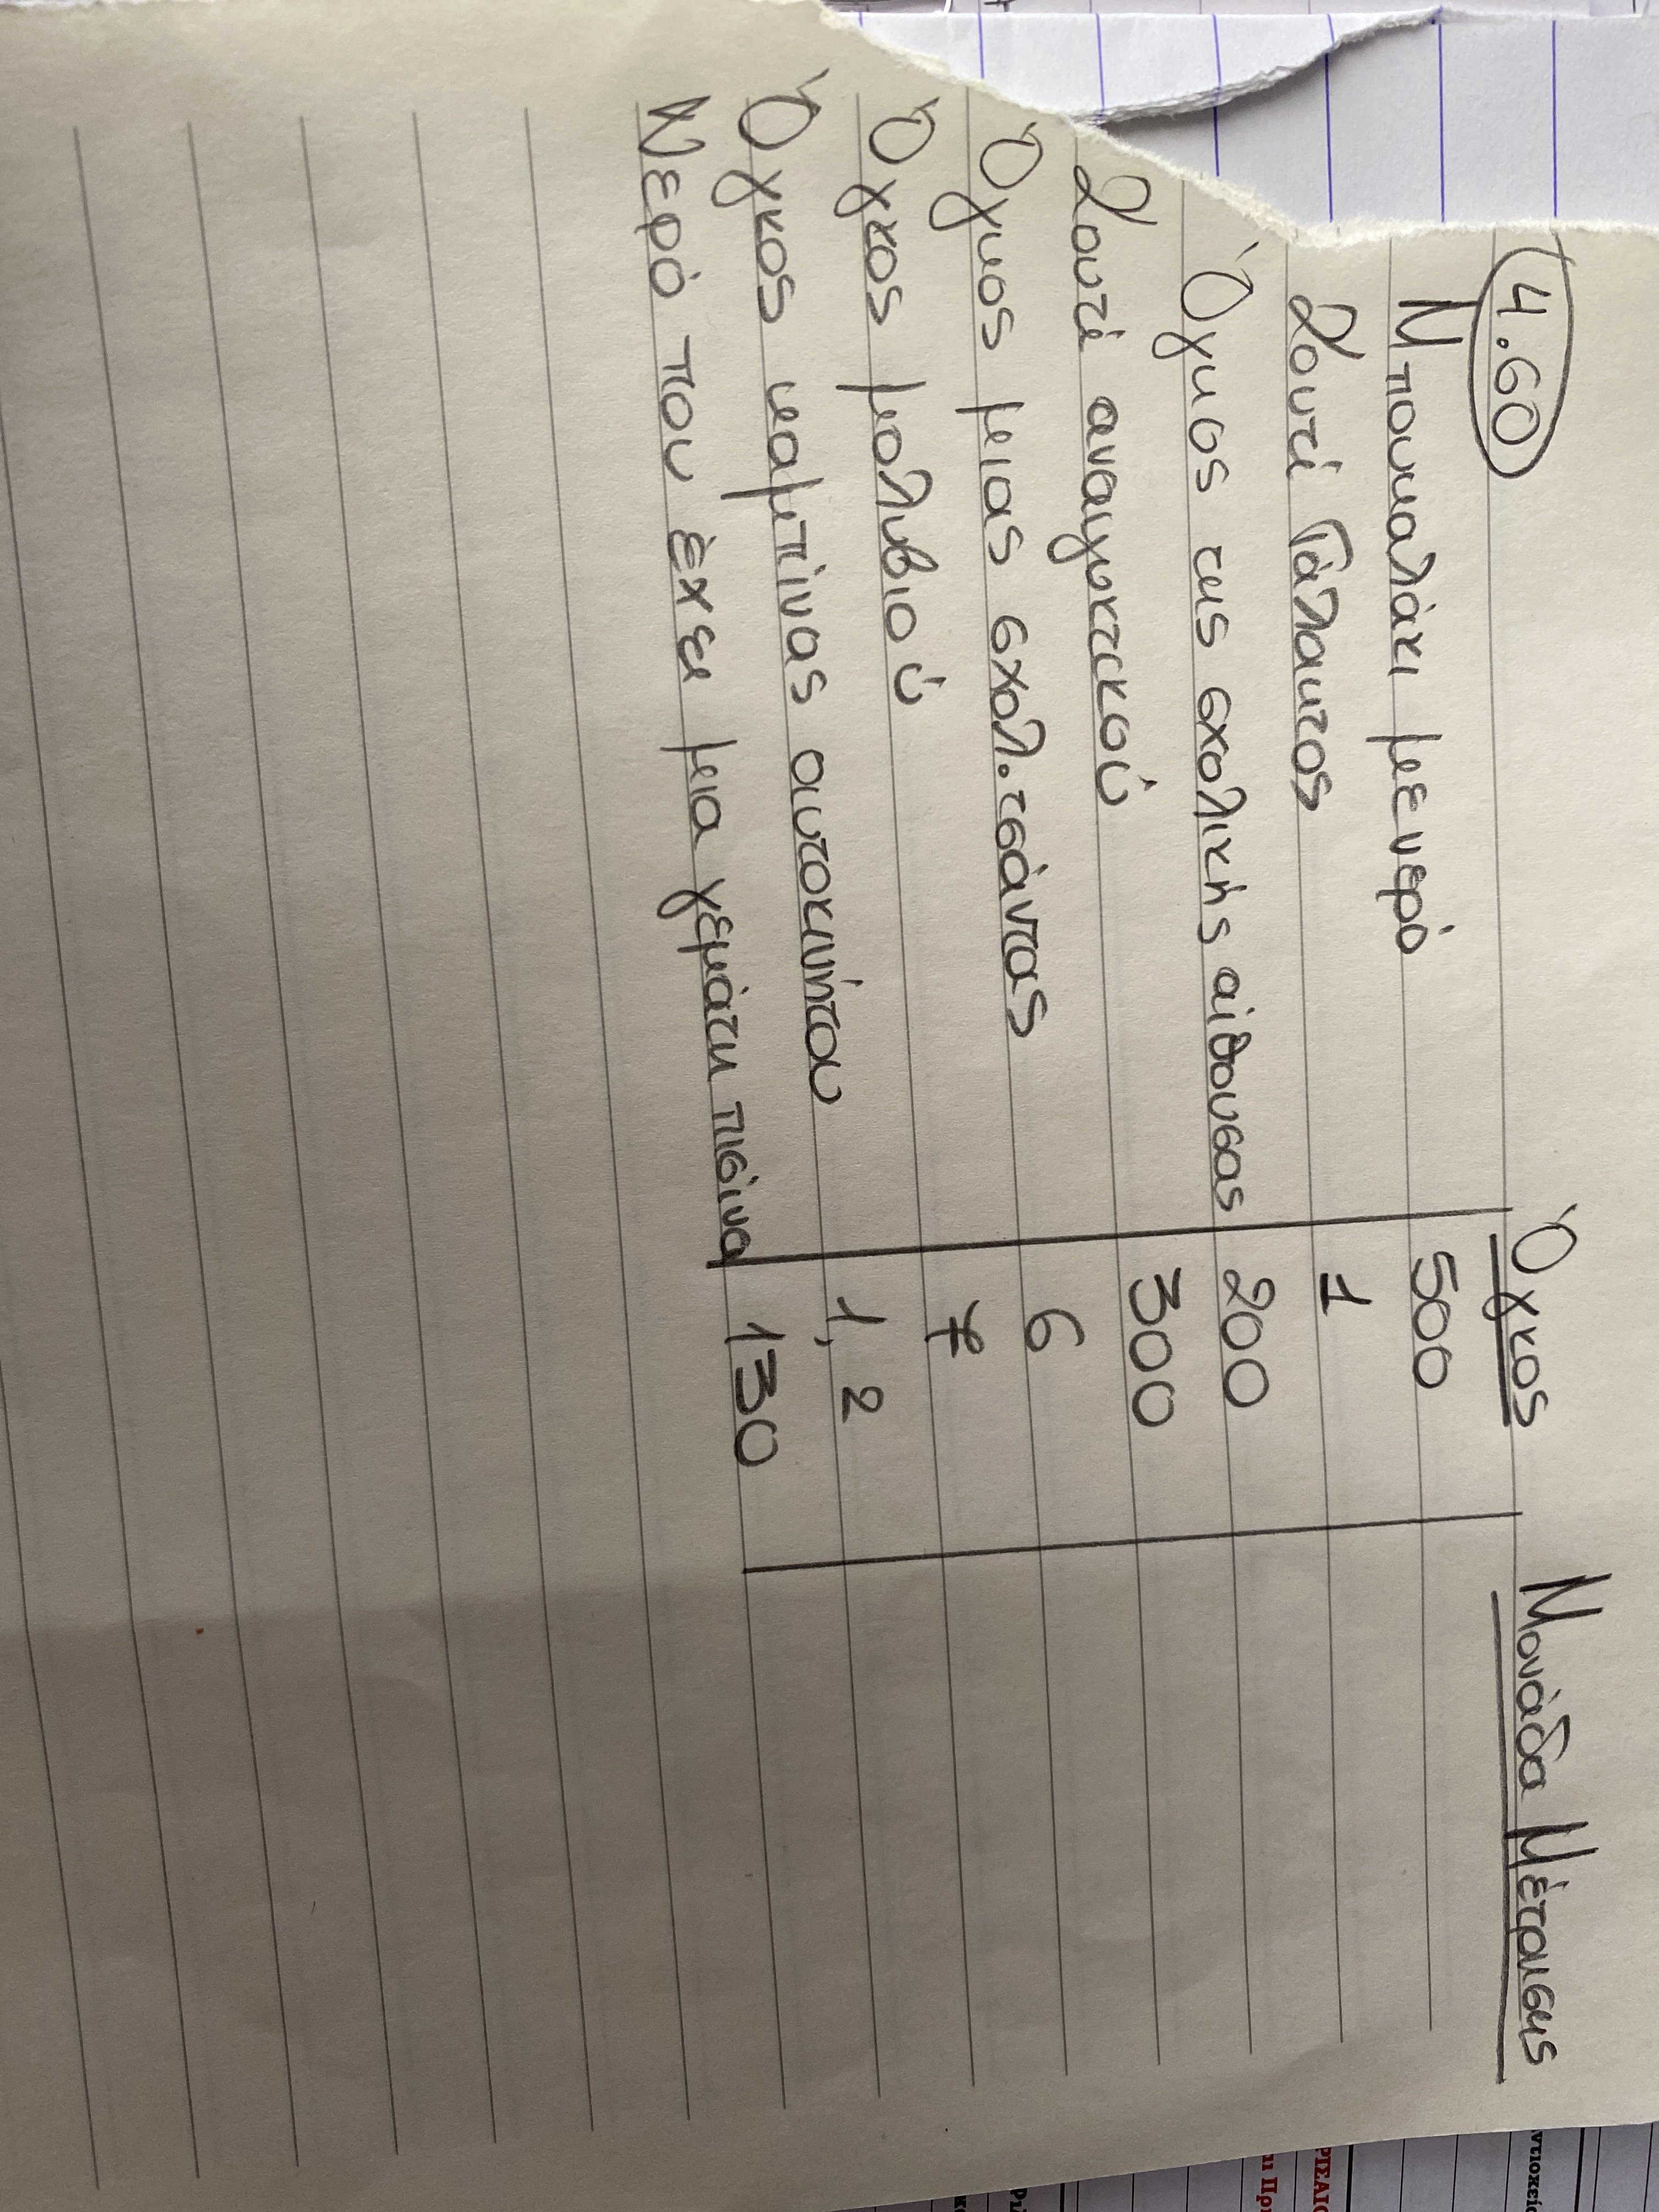 4.60 Όγκος Μονάδα Μέτρησης
Μπουκαλάκι με νερό 500
Κουτί Γάλακτος 1
Όγκος της σχολικής αίθουσας 200
Κουτί αναψυκτικού 300
Όγκος μιας σχολ. τσάντας 6
Όγκος μολυβιού 7
Όγκος καμπίνας αυτοκινήτου 1,2
Νερό που έχει μια γεμάτη πισίνα 130